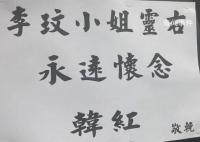 李玟小姐靈右
永遠懷念
韓紅
敬輓